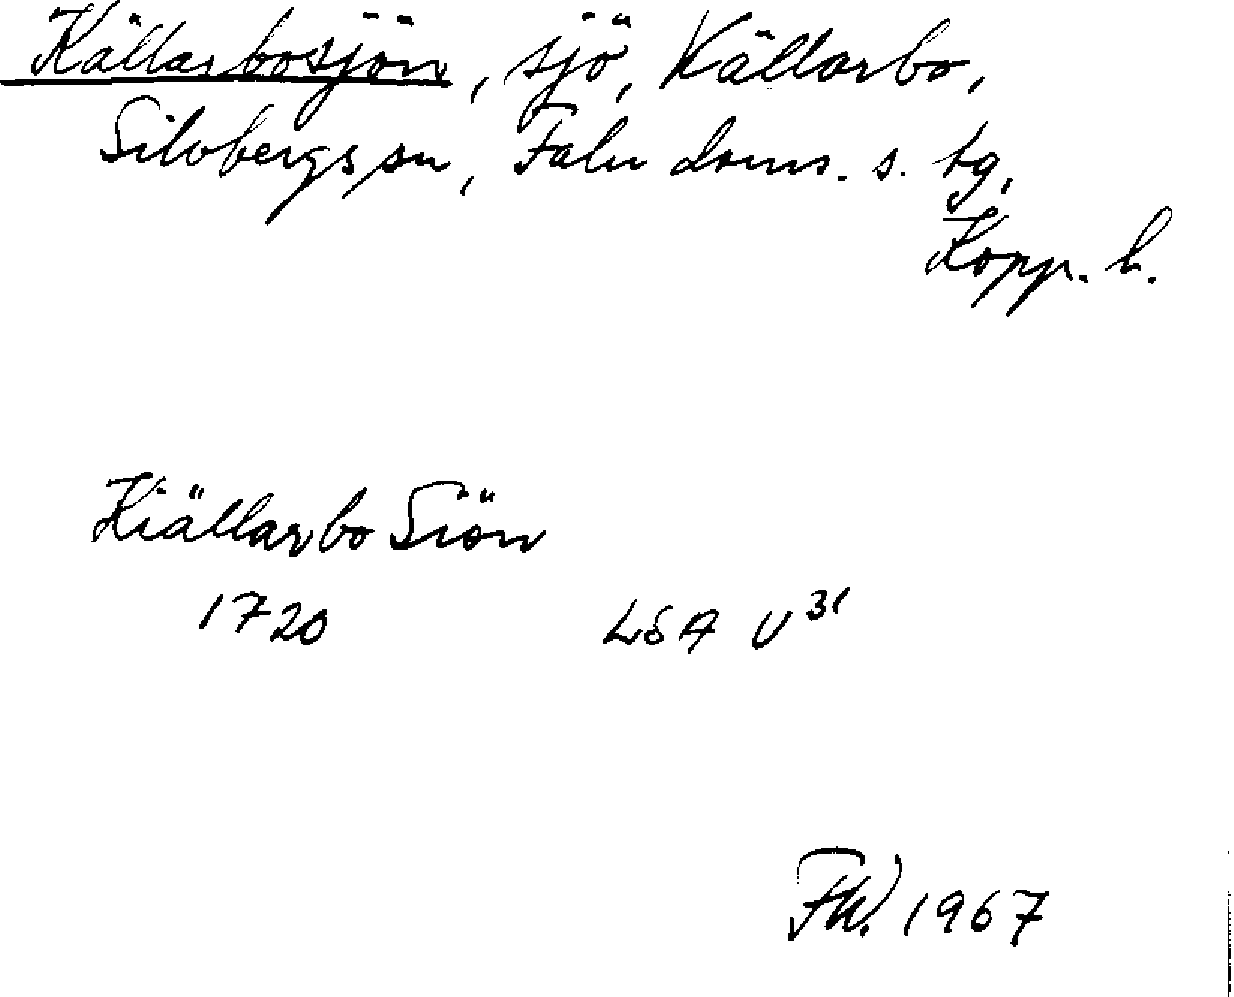 Källarbosjön, sjö, Källarbo,
Silvbergs sn, Falu doms. s. tg,
Kopp. l.
Kiällarbo Siön
1720 LSA U 31
FW. 1967